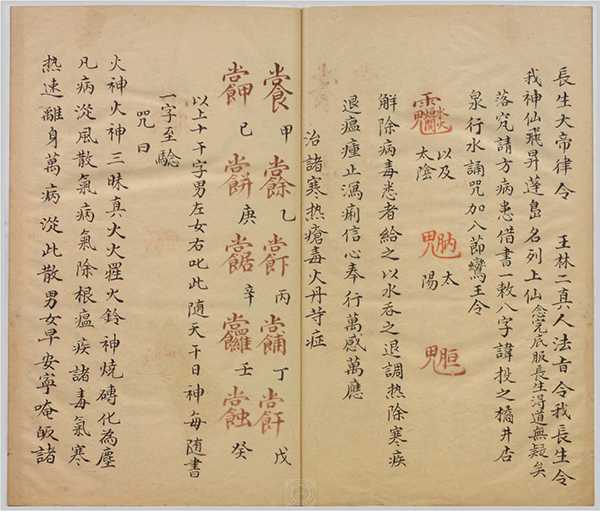 長生大帝律令 王林二真人法旨令我長生令
我神仙飛昇蓬島名列上仙念完底版長生得道無疑矣
落完請方病患借書一敕八字諱投之橋井古
泉行水誦咒加八節鸞王令
以及 太
太陰 陽
解除病毒患者給之以水吞之退調熱除寒疾
退瘟瘴止瀉痢信心奉行萬感萬應
治諸寒热瘡毒火丹等症
甲 乙 丙 丁 戊
己 庚 辛 壬 癸
以上十干字男左女右叱此隨天干日神每隨書
一字至驗
咒曰
火神火神三昧真火火霹火鈴神燒磚化為塵
凡病從風散氣病氣除根瘟疾諸毒氣寒
热速離身萬病從此散男女早安寧唵皈諸